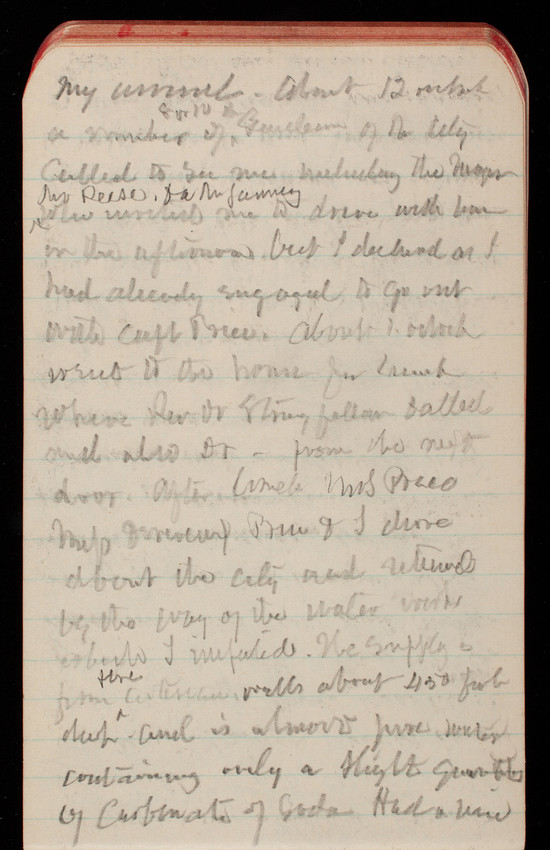 My arrival. About 12 oclock
8 or 10
a number of Gentlemen of the City
Called to see me including the Mayor
Mr Reese, Da
who invited me to drive with him
in the afternoon but I declined as I
had already engaged to go out
with Capt Price. About 1 oclock
went to the house for lunch
where Rev Dr Stringfellow Called
and also Dr - from the next
door. After lunch Mrs Price
Miss Price & I drove
about the city and returned
by the way of the water works
which I inspected. The supply is
from three artesian wells about 450 feet
deep and is almost pure water
containing only a slight quantity
of Carbonate of Soda Had a nice